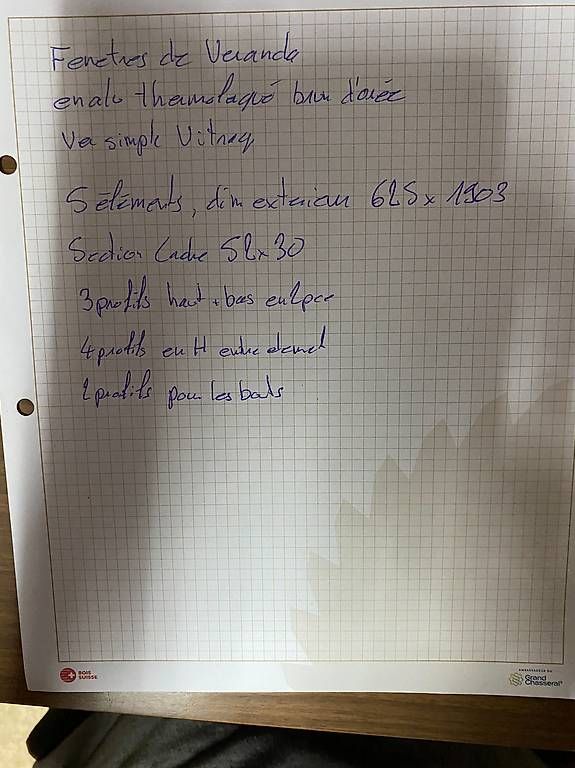 Fenetres de Veranda
en alu thermolaqué brun
Ver simple Vitrag
5 éléments, dim exterieur 625 x 1903
Section Cadre 52x30
3 profils haut + bas en 2 pce
4 profils en H entre element
2 profils pour les bouts
BOIS
SUISSE
AMBASSADEUR DU
Grand
Chasseral